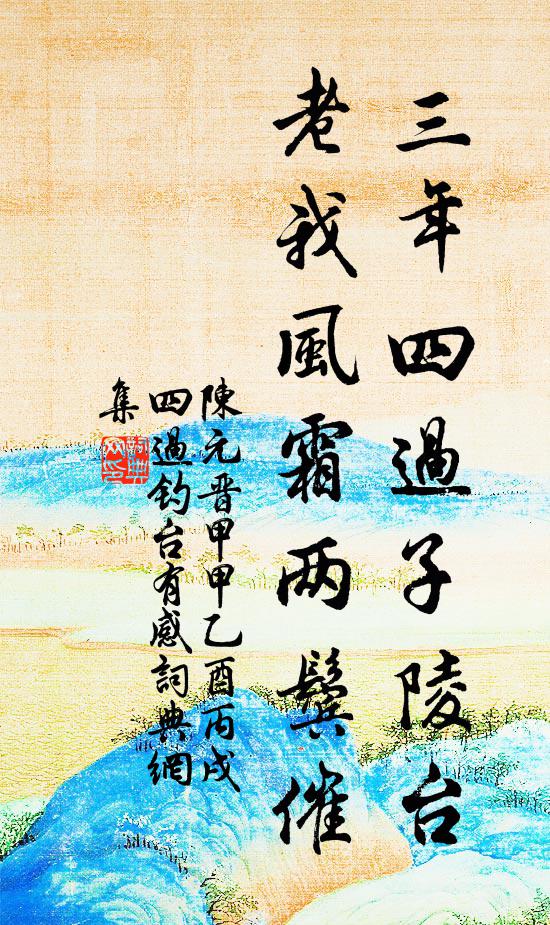 三年四過子陵台
老我風霜两鬢催
陳元晋甲甲乙酉丙戌
四過钓台有感詞典網
集